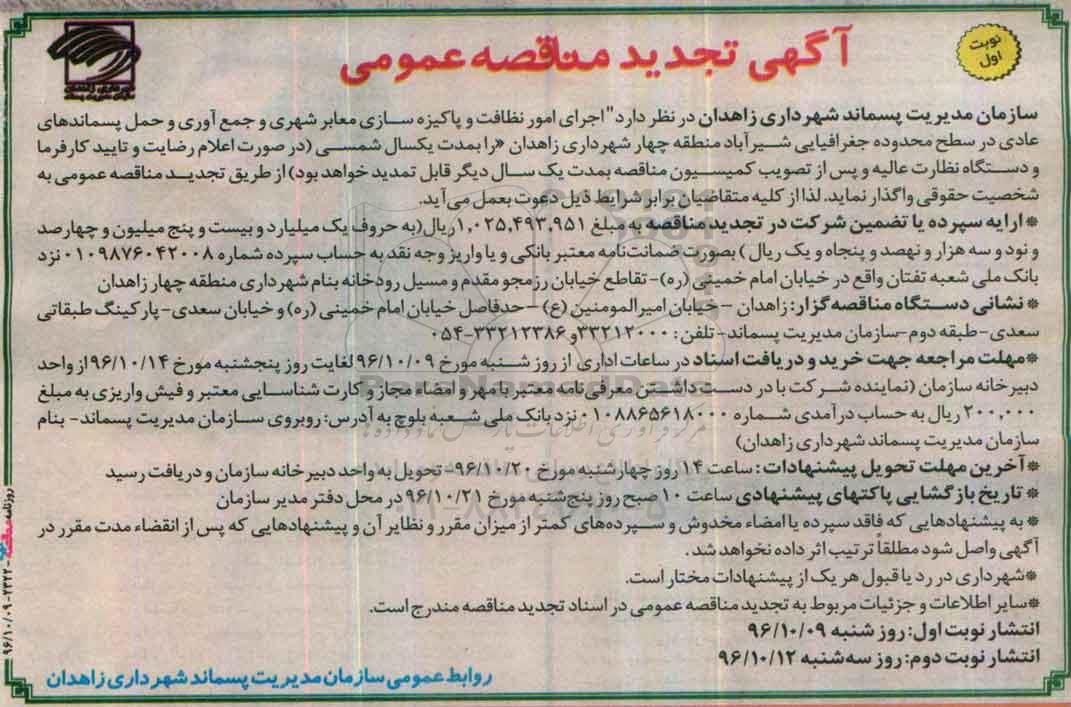 نوبت
اول
آگهی تجدید مناقصه عمومی
سازمان مدیریت پسماند شهرداری زاهدان در نظر دارد "اجرای امور نظافت و پاکیزه سازی معابر شهری و جمع آوری و حمل پسماندهای
عادی در سطح محدوده جغرافیایی شیرآباد منطقه چهار شهرداری زاهدان «را بمدت یکسال شمسی (در صورت اعلام رضایت و تایید کارفرما
و دستگاه نظارت عالیه و پس از تصویب کمیسیون مناقصه بمدت یک سال دیگر قابل تمدید خواهد بود) از طریق تجدید مناقصه عمومی به
شخصیت حقوقی واگذار نماید. لذا از کلیه متقاضیان برابر شرایط ذیل دعوت بعمل می‌آید.
*ارایه سپرده یا تضمین شرکت در تجدید مناقصه به مبلغ ۱,۰۲۵,۴۹۳,۹۵۱ریال (به حروف یک میلیارد و بیست و پنج میلیون و چهارصد
و نود و سه هزار و نهصد و پنجاه و یک ریال) بصورت ضمانت‌نامه معتبر بانکی و یا واریز وجه نقد به حساب سپرده شماره ۰۱۰۹۸۷۶۰۴۲۰۰۸ نزد
بانک ملی شعبه تفتان واقع در خیابان امام خمینی (ره)- تقاطع خیابان رزمجو مقدم و مسیل رودخانه بنام شهرداری منطقه چهار زاهدان
* نشانی دستگاه مناقصه گزار: زاهدان - خیابان امیرالمومنین (ع) - حدفاصل خیابان امام خمینی (ره) و خیابان سعدی- پارکینگ طبقاتی
سعدی- طبقه دوم-سازمان مدیریت پسماند- تلفن: ۳۳۲۱۲۰۰۰و ۳۳۲۱۲۳۸۶-۰۵۴
*مهلت مراجعه جهت خرید و دریافت اسناد در ساعات اداری از روز شنبه مورخ ۹۶/۱۰/۰۹لغایت روز پنجشنبه مورخ ۹۶/۱۰/۱۴از واحد
دبیرخانه سازمان (نماینده شرکت با در دست داشتن معرفی‌نامه معتبر با مهر و امضاء مجاز و کارت شناسایی معتبر و فیش واریزی به مبلغ
۲۰۰,۰۰۰ ریال به حساب درآمدی شماره ۰۱۰۸۸۶۵۶۱۸۰۰۰ نزد بانک ملی شعبه بلوچ به آدرس: روبروی سازمان مدیریت پسماند- بنام
سازمان مدیریت پسماند شهرداری زاهدان)
*آخرین مهلت تحویل پیشنهادات: ساعت ۱۴ روز چهارشنبه مورخ ۹۶/۱۰/۲۰- تحویل به واحد دبیرخانه سازمان و دریافت رسید
* تاریخ بازگشایی پاکتهای پیشنهادی ساعت ۱۰ صبح روز پنج‌شنبه مورخ ۹۶/۱۰/۲۱ در محل دفتر مدیر سازمان
* به پیشنهادهایی که فاقد سپرده یا امضاء مخدوش و سپرده‌های کمتر از میزان مقرر و نظایر آن و پیشنهادهایی که پس از انقضاء مدت مقرر در
آگهی واصل شود مطلقاً ترتیب اثر داده نخواهد شد.
*شهرداری در رد یا قبول هر یک از پیشنهادات مختار است.
*سایر اطلاعات و جزئیات مربوط به تجدید مناقصه عمومی در اسناد تجدید مناقصه مندرج است.
انتشار نوبت اول: روز شنبه ۹۶/۱۰/۰۹
انتشار نوبت دوم: روز سه‌شنبه ۹۶/۱۰/۱۲
روابط عمومی سازمان مدیریت پسماند شهرداری زاهدان
روزنامه ۲۳۲۲-۹۶/۱۰/۰۹